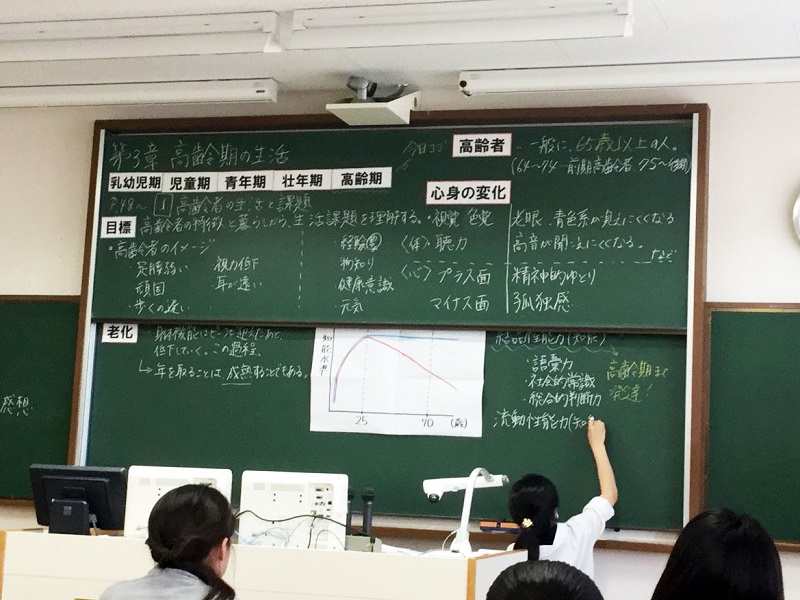 第3章 高齢期の生活
乳幼児期 児童期 青年期 壮年期 高齢期
P.48~ 1 高齢者の生活と課題
目標 高齢者の特徴と暮らしから、生活課題を理解する。
・高齢者のイメージ
足腰弱い
頑固
歩くの遅い
視力低下
耳が遠い
経験豊
物知り
健康意識
元気
今日ココ!
高齢者 … 一般に、65歳以上の人。
(64~74 前期高齢者 75~後期)
心身の変化
・視覚 色覚 老眼・青色系が見えにくくなる
〈体〉聴力 高音が聞こえにくくなる。
など
〈心〉プラス面 精神的ゆとり
マイナス面 孤独感
老化
低下していく。この過程。
↳年を取ることは 成熟することでもある。
知能水準
25 70 (歳)
結晶性能力(知能)
・語彙力
・社会的常識
・総合的判断力
高齢期まで
発達!
流動性能力(知
感想